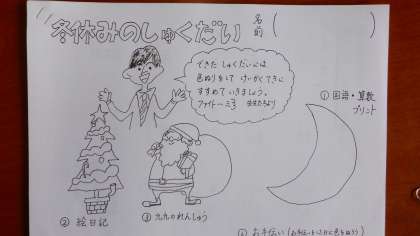 冬休みのしゅくだい
名前（　　　　）
できた しゅくだいには
色ぬりをして けいかくてきに
すすめていきましょう。
ファイトーミ3
① 国語・算数
プリント
② 絵日記
③ 九九のれんしゅう
お手伝い